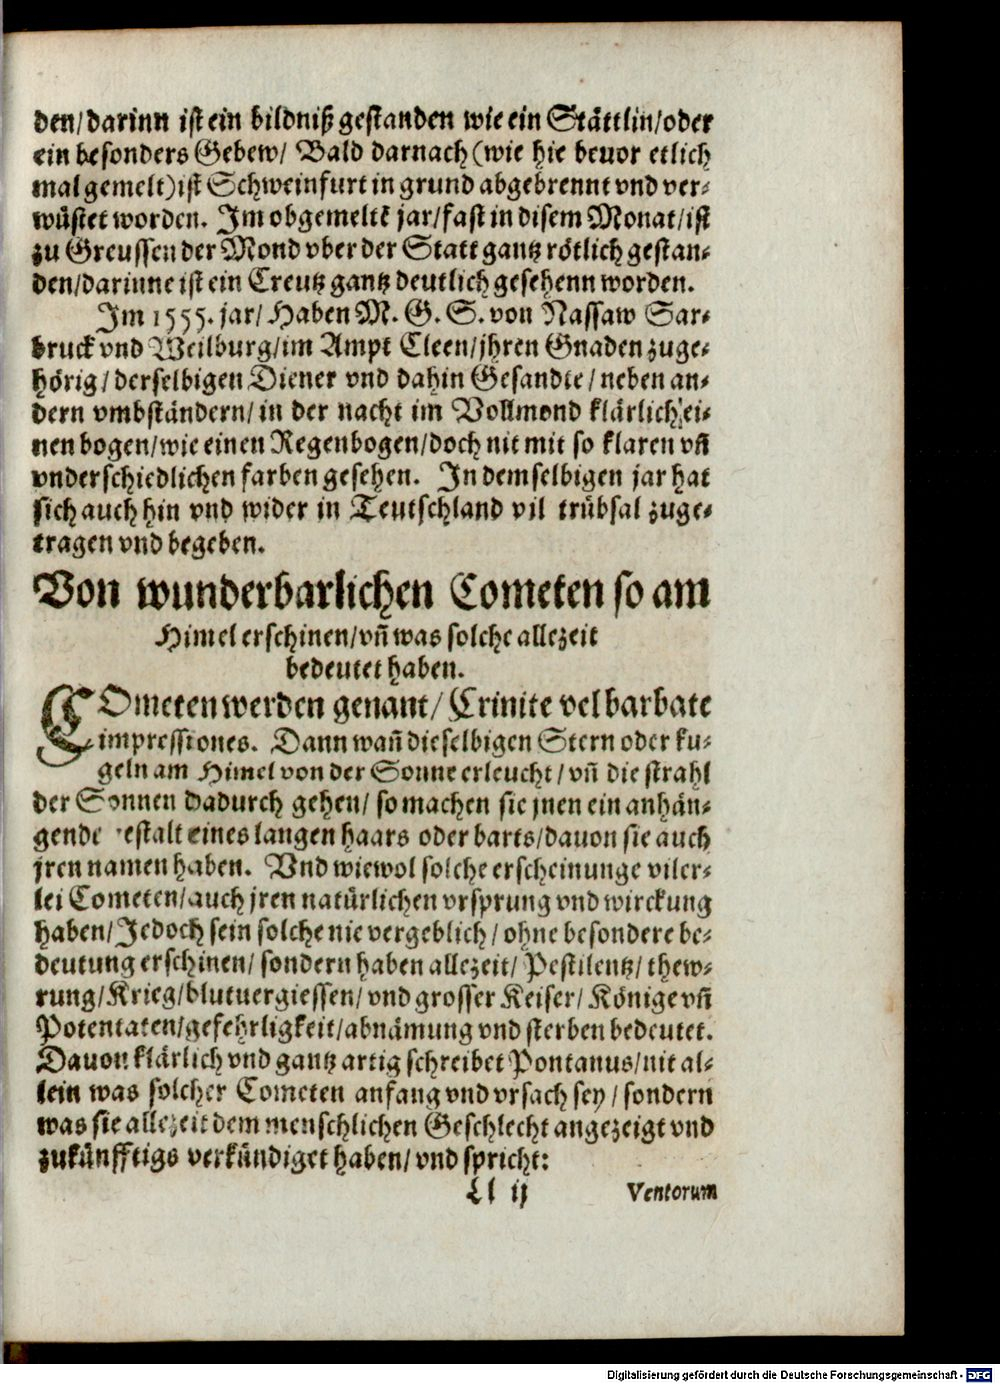 den/darinn ist ein bildniß gestanden wie ein Stättlin/oder
ein besonders Gebew/ Bald darnach (wie hie beuor etlich
mal gemelt) ist Schweinfurt in grund abgebrennt vnd ver-
wüstet worden. Im obgemeltē jar/fast in disem Monat/ist
zu Greussen der Mond vber der Statt gantz rötlich gestan-
den/darinne ist ein Creutz gantz deutlich gesehenn worden.
Im 1555. jar/ Haben M. G. S. von Nassaw Sar-
bruck vnd Weilburg/im Ampt Cleen/jhren Gnaden zuge-
hörig/ derselbigen Diener vnd dahin Gesandte/ neben an-
dern vmbständern/ in der nacht im Vollmond klärlich ei-
nen bogen/wie einen Regenbogen/doch nit mit so klaren vñ
vnderschiedlichen farben gesehen. In demselbigen jar hat
sich auch hin vnd wider in Teutschland vil trübsal zuge-
tragen vnd begeben.
Von wunderbarlichen Cometen so am
Himel erschinen/vñ was solche allezeit
bedeutet haben.
COmeten werden genant/ Crinite vel barbate
impressiones. Dann wañ dieselbigen Stern oder ku-
geln am Himel von der Sonne erleucht/ vñ die strahl
der Sonnen dadurch gehen/ so machen sie jnen ein anhän-
gende estalt eines langen haars oder barts/dauon sie auch
jren namen haben. Vnd wiewol solche erscheinunge viler-
lei Cometen/auch jren natürlichen vrsprung vnd wirckung
haben/Jedoch sein solche nie vergeblich/ ohne besondere be-
deutung erschinen/ sondern haben allezeit/ Pestilentz/ thew-
rung/Krieg/blutuergiessen/vnd grosser Keiser/ Könige vñ
Potentaten/gefehrligkeit/abnämung vnd sterben bedeutet.
Dauon klärlich vnd gantz artig schreibet Pontanus/nit al-
lein was solcher Cometen anfang vnd vrsach sey/ sondern
was sie allezeit dem menschlichen Geschlecht angezeigt vnd
zukünfftigs verkündiget haben/ vnd spricht:
Ll ij Ventorum
Digitalisierung gefördert durch die Deutsche Forschungsgemeinschaft - DFG